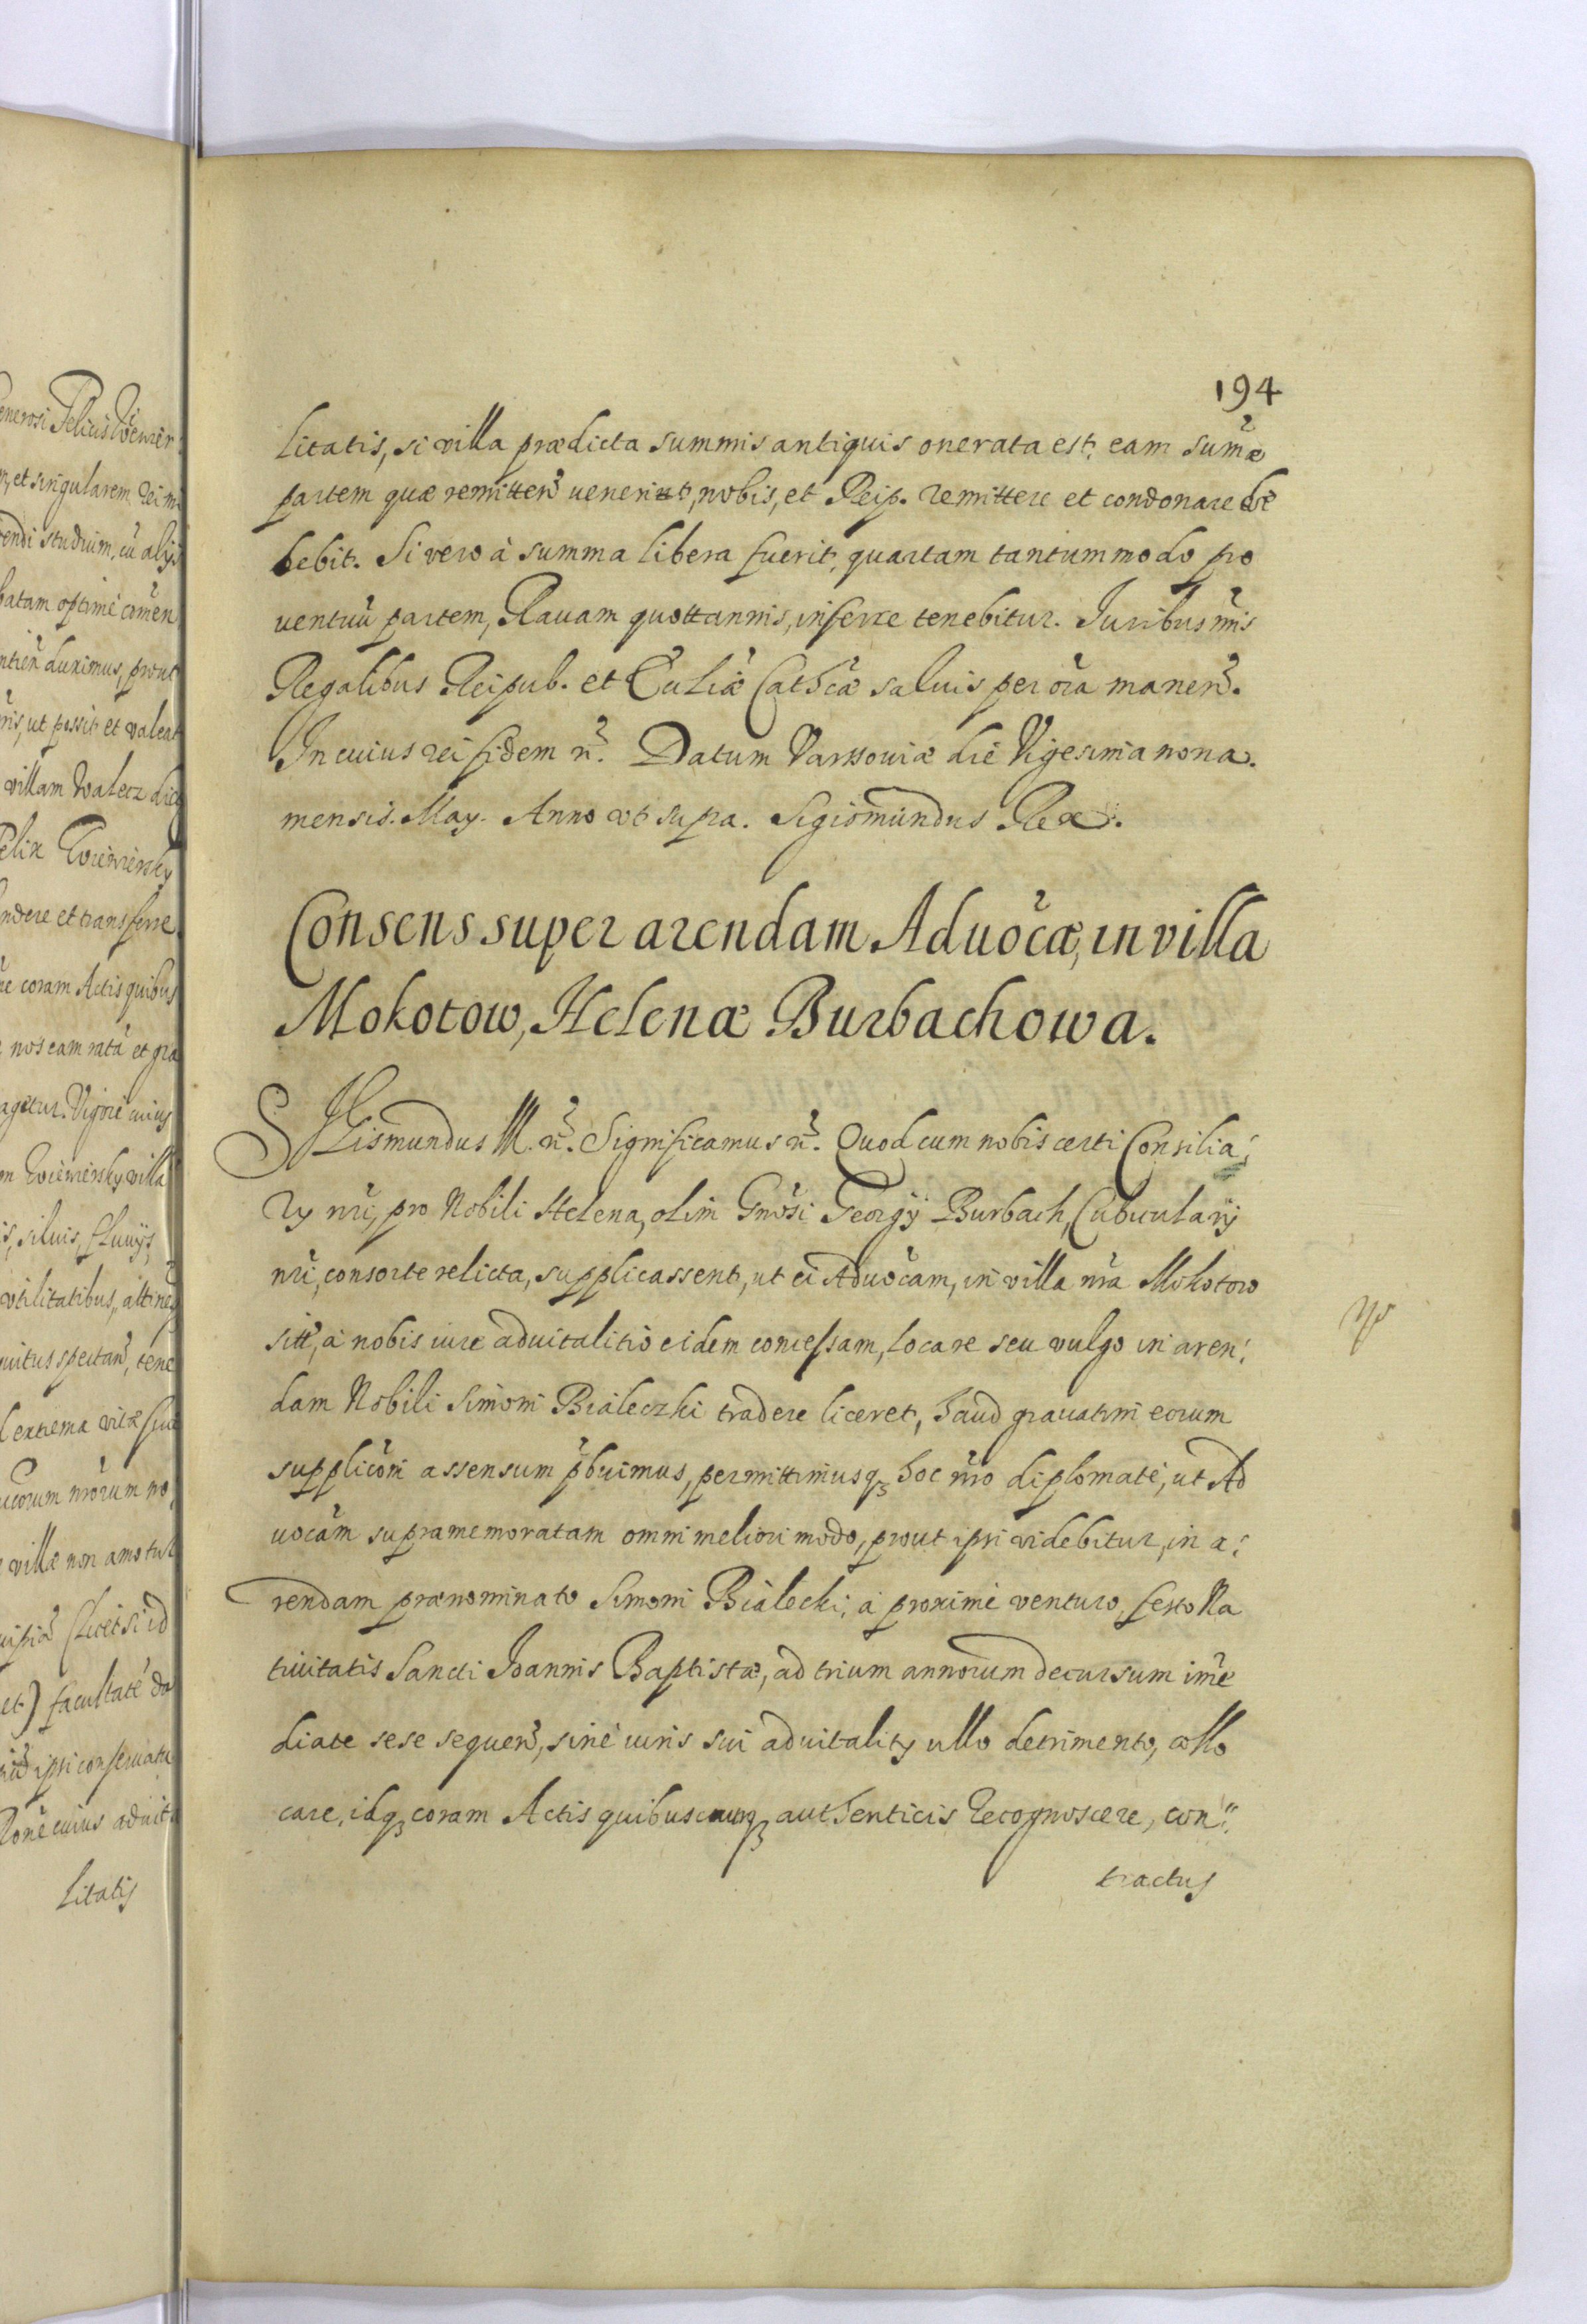 194
litatis, si villa prædicta summis antiquis onerata est, eam sum̃æ
partem quæ remitten̄ uenerit, nobis, et Reip. remittere et condonare de
bebit. Si vero à summa libera fuerit, quartam tantummodo pro
uentuũ partem, Rauam quottannis, inferre tenebitur. Iuribus nr̃is
Regalibus Reipub. et Ecc̃liæ Cathc̃æ saluis per oĩa manen̄.
In cuius rei fidem ec̃. Datum Varssouiæ die Vigesima nona.
mensis. May. Anno vt supra. Sigismundus Rex.
Consens super arendam Aduoc̃æ, in villa
Mokotow, Helenæ Burbachowa.
SIGismundus III. ec̃. Significamus ec̃. Quod cum nobis certi Consilia:
ry nr̃i, pro Nobili Helena, olim Gnõsi Georgÿ Burbach, Cubicularÿ
nr̃i, consorte relicta, supplicassent, ut ei Aduoc̃am, in villa nr̃a Mokotow
sitt̃, à nobis iure aduitalitio eidem concessam, locare seu vulgo in aren:
dam Nobili Simoni Bialeczki tradere liceret, haud grauatim eorum
supplicõni assensum p̃buimus, permittimusq3 hoc nr̃o diplomate, ut Ad
uoc̃am supramemoratam omni meliori modo, prout ipsi videbitur, in a:
rendam prænominato Simoni Bialecki, à proximè venturo, festo Na
tiuitatis Sancti Joannis Baptistæ, ad trium annorum decursum im̃e
diate sese sequen̄, sine iuris sui aduitality ullo detrimento, collo
care, idq3 coram Actis quibuscunq3 authenticis recognoscere, con:
tractus
enerosi Felicis
n, et singularem rei
endi studium, cũ alijs
batam optimè com̃en
duximus, prout
ris, ut possit et valeat
villam Walecz dic
elix
ndere et transferre
coram Actis quibus
nos eam ratã et gra
agetur. Vigore cuius
villa
is, siluis, fluuijs,
vtilitatibus, attinen
quitus spectan̄, tene
extrema vitæ suæ
corum nr̃orum no
villæ non amotur
licet si id
et) facultatẽ da
ipsi conseruatu
cuius aduit
litatis